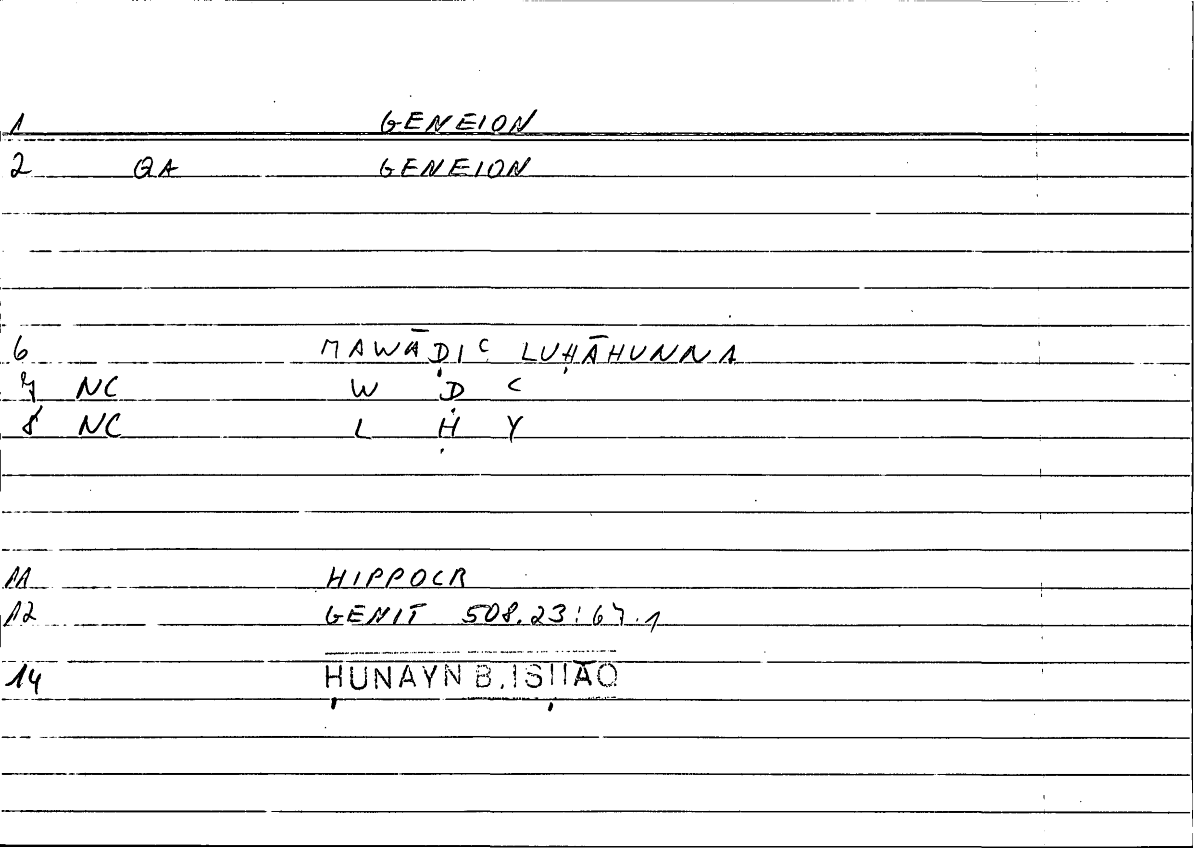 1 GENEION
2 QA GENEION
6 MAWĀḌIʿ LUḤĀHUNNA
7 NC W Ḍ ʿ
8 NC L Ḥ Y
11 HIPPOCR
12 GENIT 508.23:67.1
14 ḤUNAYN B. ISḤĀQ